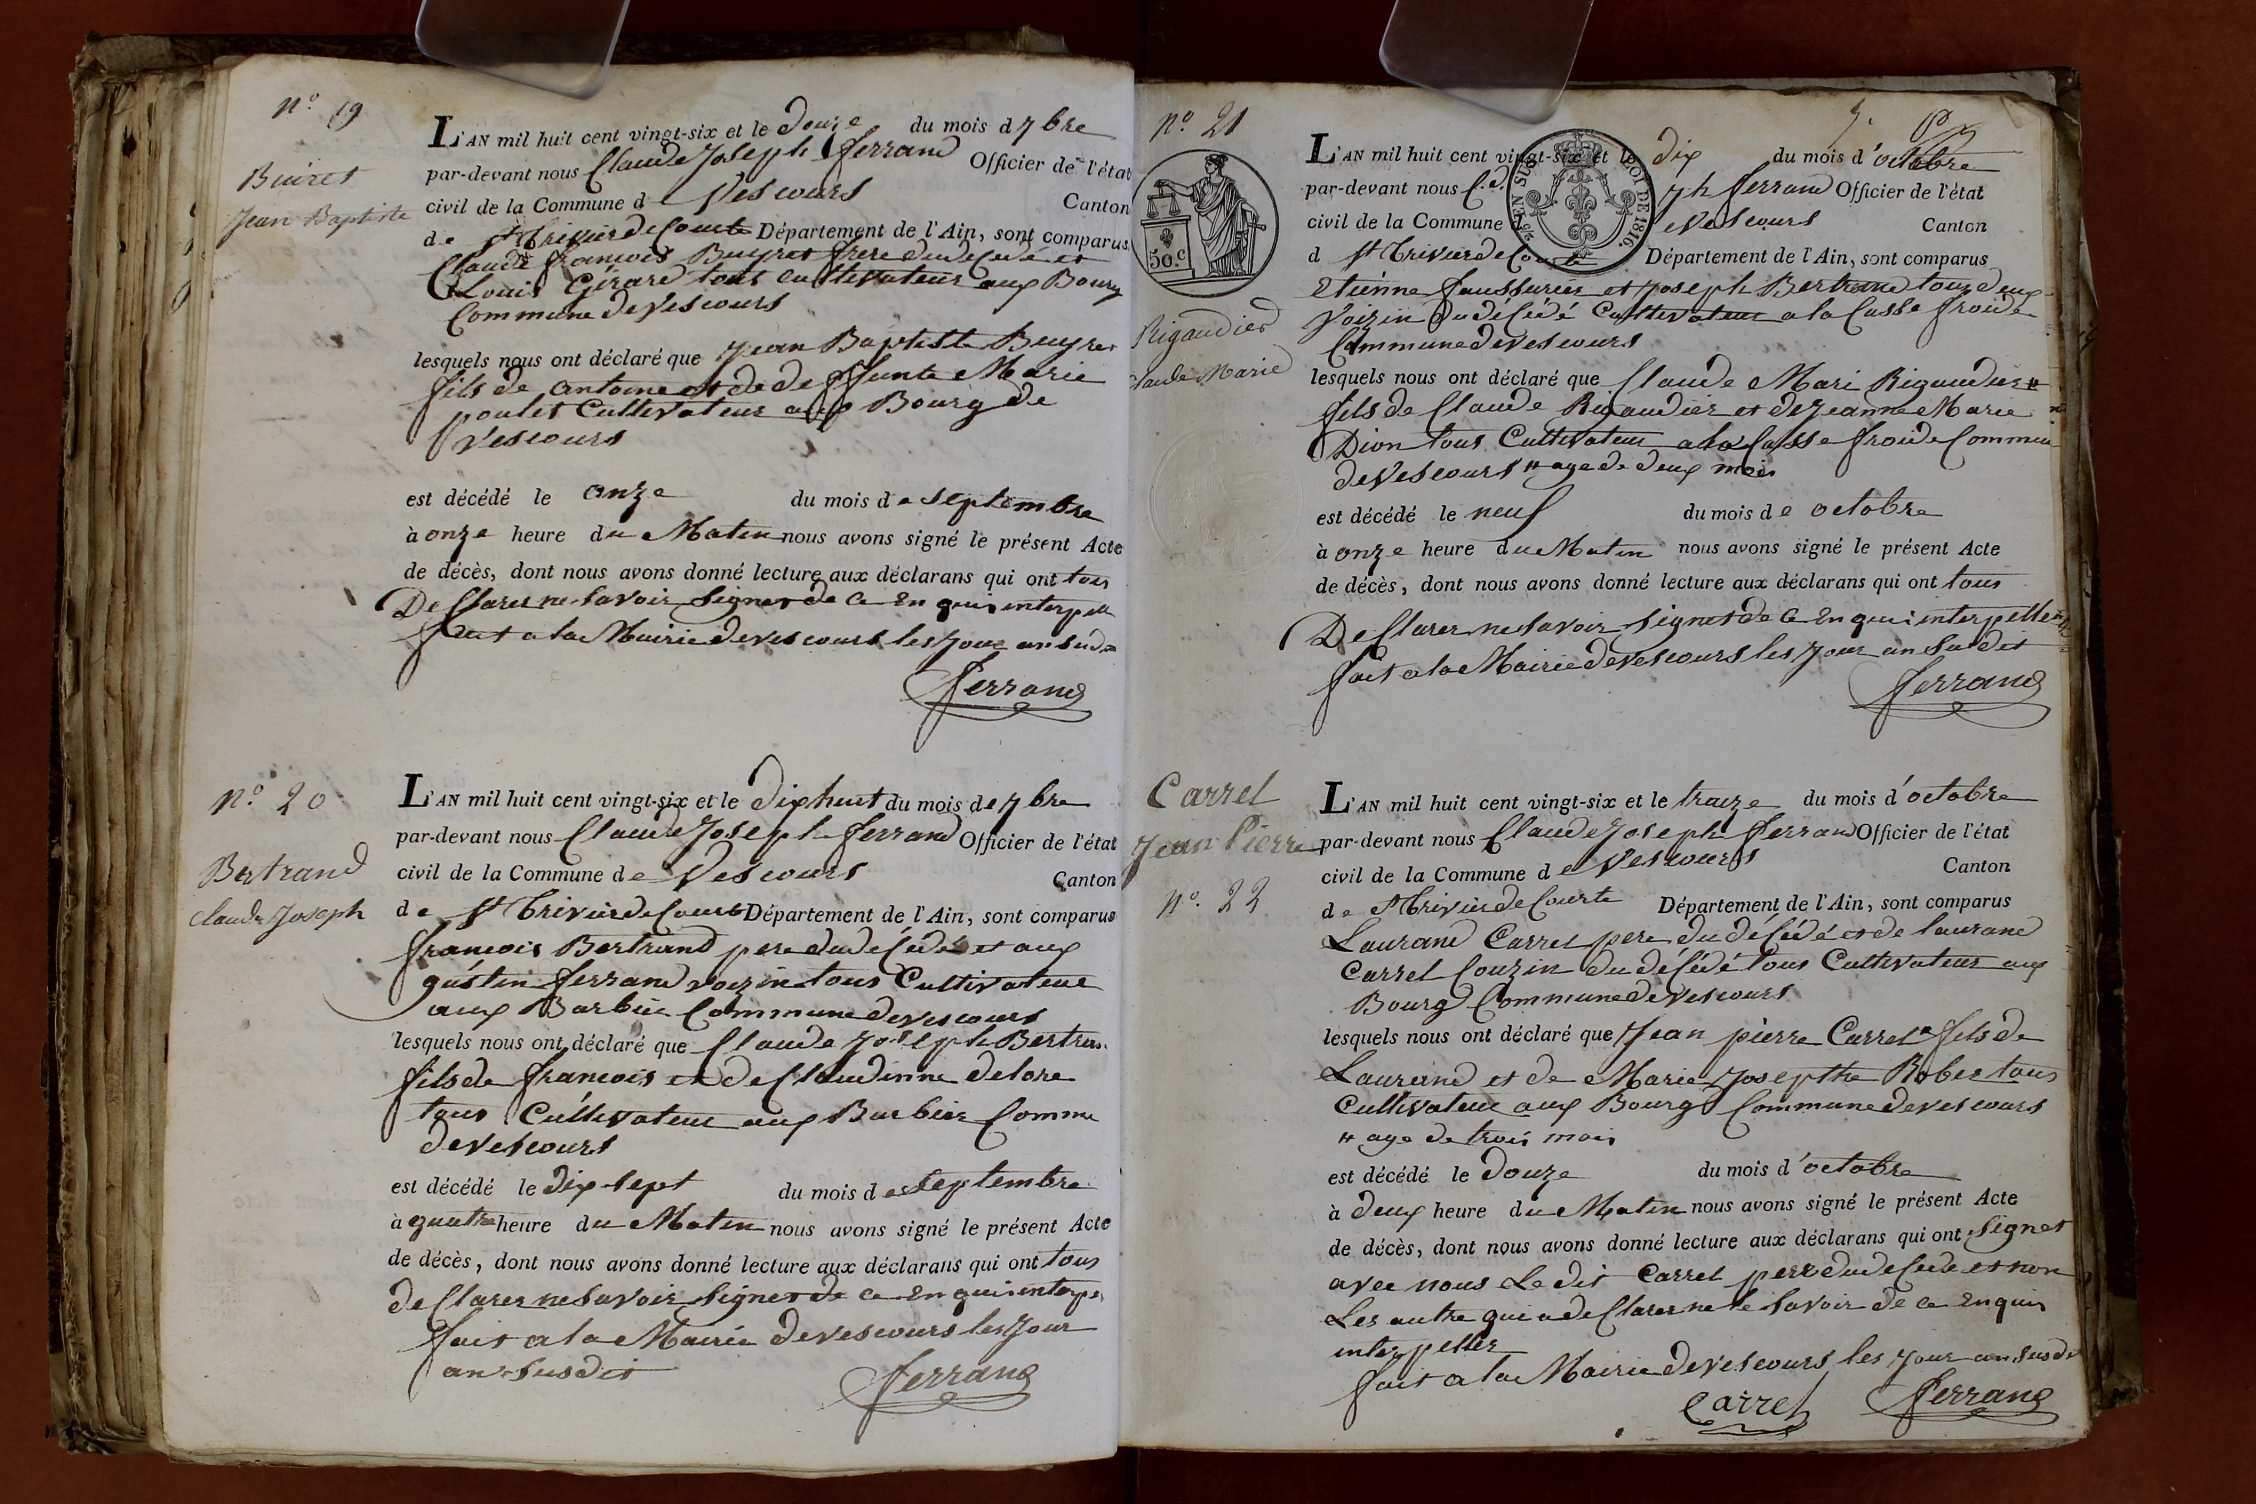 N.o 19
Buiret
Jean Baptiste
L'AN mil huit cent vingt-six et le douze du mois d 7bre
par-devant nous Claude Joseph Ferrand Officier de l'état
civil de la Commune de Vescours Canton
de St Trivier de Courte Département de l'Ain, sont comparus
Claude françois Buyret frere du deCedé et
Louis Gérard tous cultivateur aux Bourg
Commune de Vescours
lesquels nous ont déclaré que Jean Baptiste Buyret
fils de antoine et de deffunte Marie
poulet Cultivateur aux Bourg de
Vescours
est décédé le onze du mois de septembre
à onze heure du Matin nous avons signé le présent Acte
de décès, dont nous avons donné lecture aux déclarans qui ont tous
DeClarer ne savoir signer de Ce En quis interpell
fait a la Mairie de vescours les Jour an susd
Ferrand
N.o 20
Bertrand
Claude Joseph
L'AN mil huit cent vingt-six et le dix huit du mois de 7bre
par-devant nous Claude Joseph Ferrand Officier de l'état
civil de la Commune de Vescours Canton
de St Trivier de Courte Département de l'Ain, sont comparus
francois Bertrand pere du déCédé et aux
gustin ferrand voizin tous Cultivateur
aux Barbier Commune de vescours
lesquels nous ont déclaré que Claude Joseph Bertran
fils de françois et de Claudinne delore
tous Cultivateur aux Barbier Commu
de Vescours
est décédé le dix sept du mois de septembre
à quatre heure du Matin nous avons signé le présent Acte
de décès, dont nous avons donné lecture aux déclarans qui ont tous
deClarer ne savoir signer de Ce En quis interpe
fait a la Mairie de vescours les Jour
an susdit
Ferrand
N.o 21
50.c
EN SUS
LOI DE 1816.
Rigaudier
Claude Marie
L'AN mil huit cent vingt-six et le dix du mois d'octobre
par-devant nous C.d. Jh ferrand Officier de l'état
civil de la Commune de Vescours Canton
d St Trivier de Courte Département de l'Ain, sont comparus
Etiènne faussurier et Joseph Bertrand tous deux
Voizin du déCédé Cultivateur a la Casse froide
Commune de Vescours
lesquels nous ont déclaré que Claude Mari Rigaudier #
fils de Claude Rigaudier et de Jeanne Marie
Dion tous Cultivateur a la Casse froide Commun
de Vescours # age de deux mois
est décédé le neuf du mois de octobre
à onze heure du Matin nous avons signé le présent Acte
de décès, dont nous avons donné lecture aux déclarans qui ont tous
DeClarer ne savoir signer de Ce En qui interpelle
fait a la Mairie de vescours les Jour an Susdit
Ferrand
Carrel
Jean Pierre
N.o 22
L'AN mil huit cent vingt-six et le traize du mois d'octobre
par-devant nous Claude Joseph Ferrand Officier de l'état
civil de la Commune de Vescours Canton
de St Trivier de Courte Département de l'Ain, sont comparus
Laurand Carrel pere du déCédé et de laurand
Carrel Couzin du déCédé tous Cultivateur aux
Bourg Commune de Vescours
lesquels nous ont déclaré que Jean pièrre Carrel # fils de
Laurand et de Marie Josepthe Rober tous
Cultivateur aux Bourg Commune de vescours
# age de trois mois
est décédé le douze du mois d'octobre
à deux heure du Matin nous avons signé le présent Acte
de décès, dont nous avons donné lecture aux déclarans qui ont Signer
avec nous Le dit Carrel pere du deCede et non
Les autre qui a deClarer ne le savoir de Ce En quis
interpeller
fait a la Mairie de vescours les Jour an susdi
Carrel Ferrand